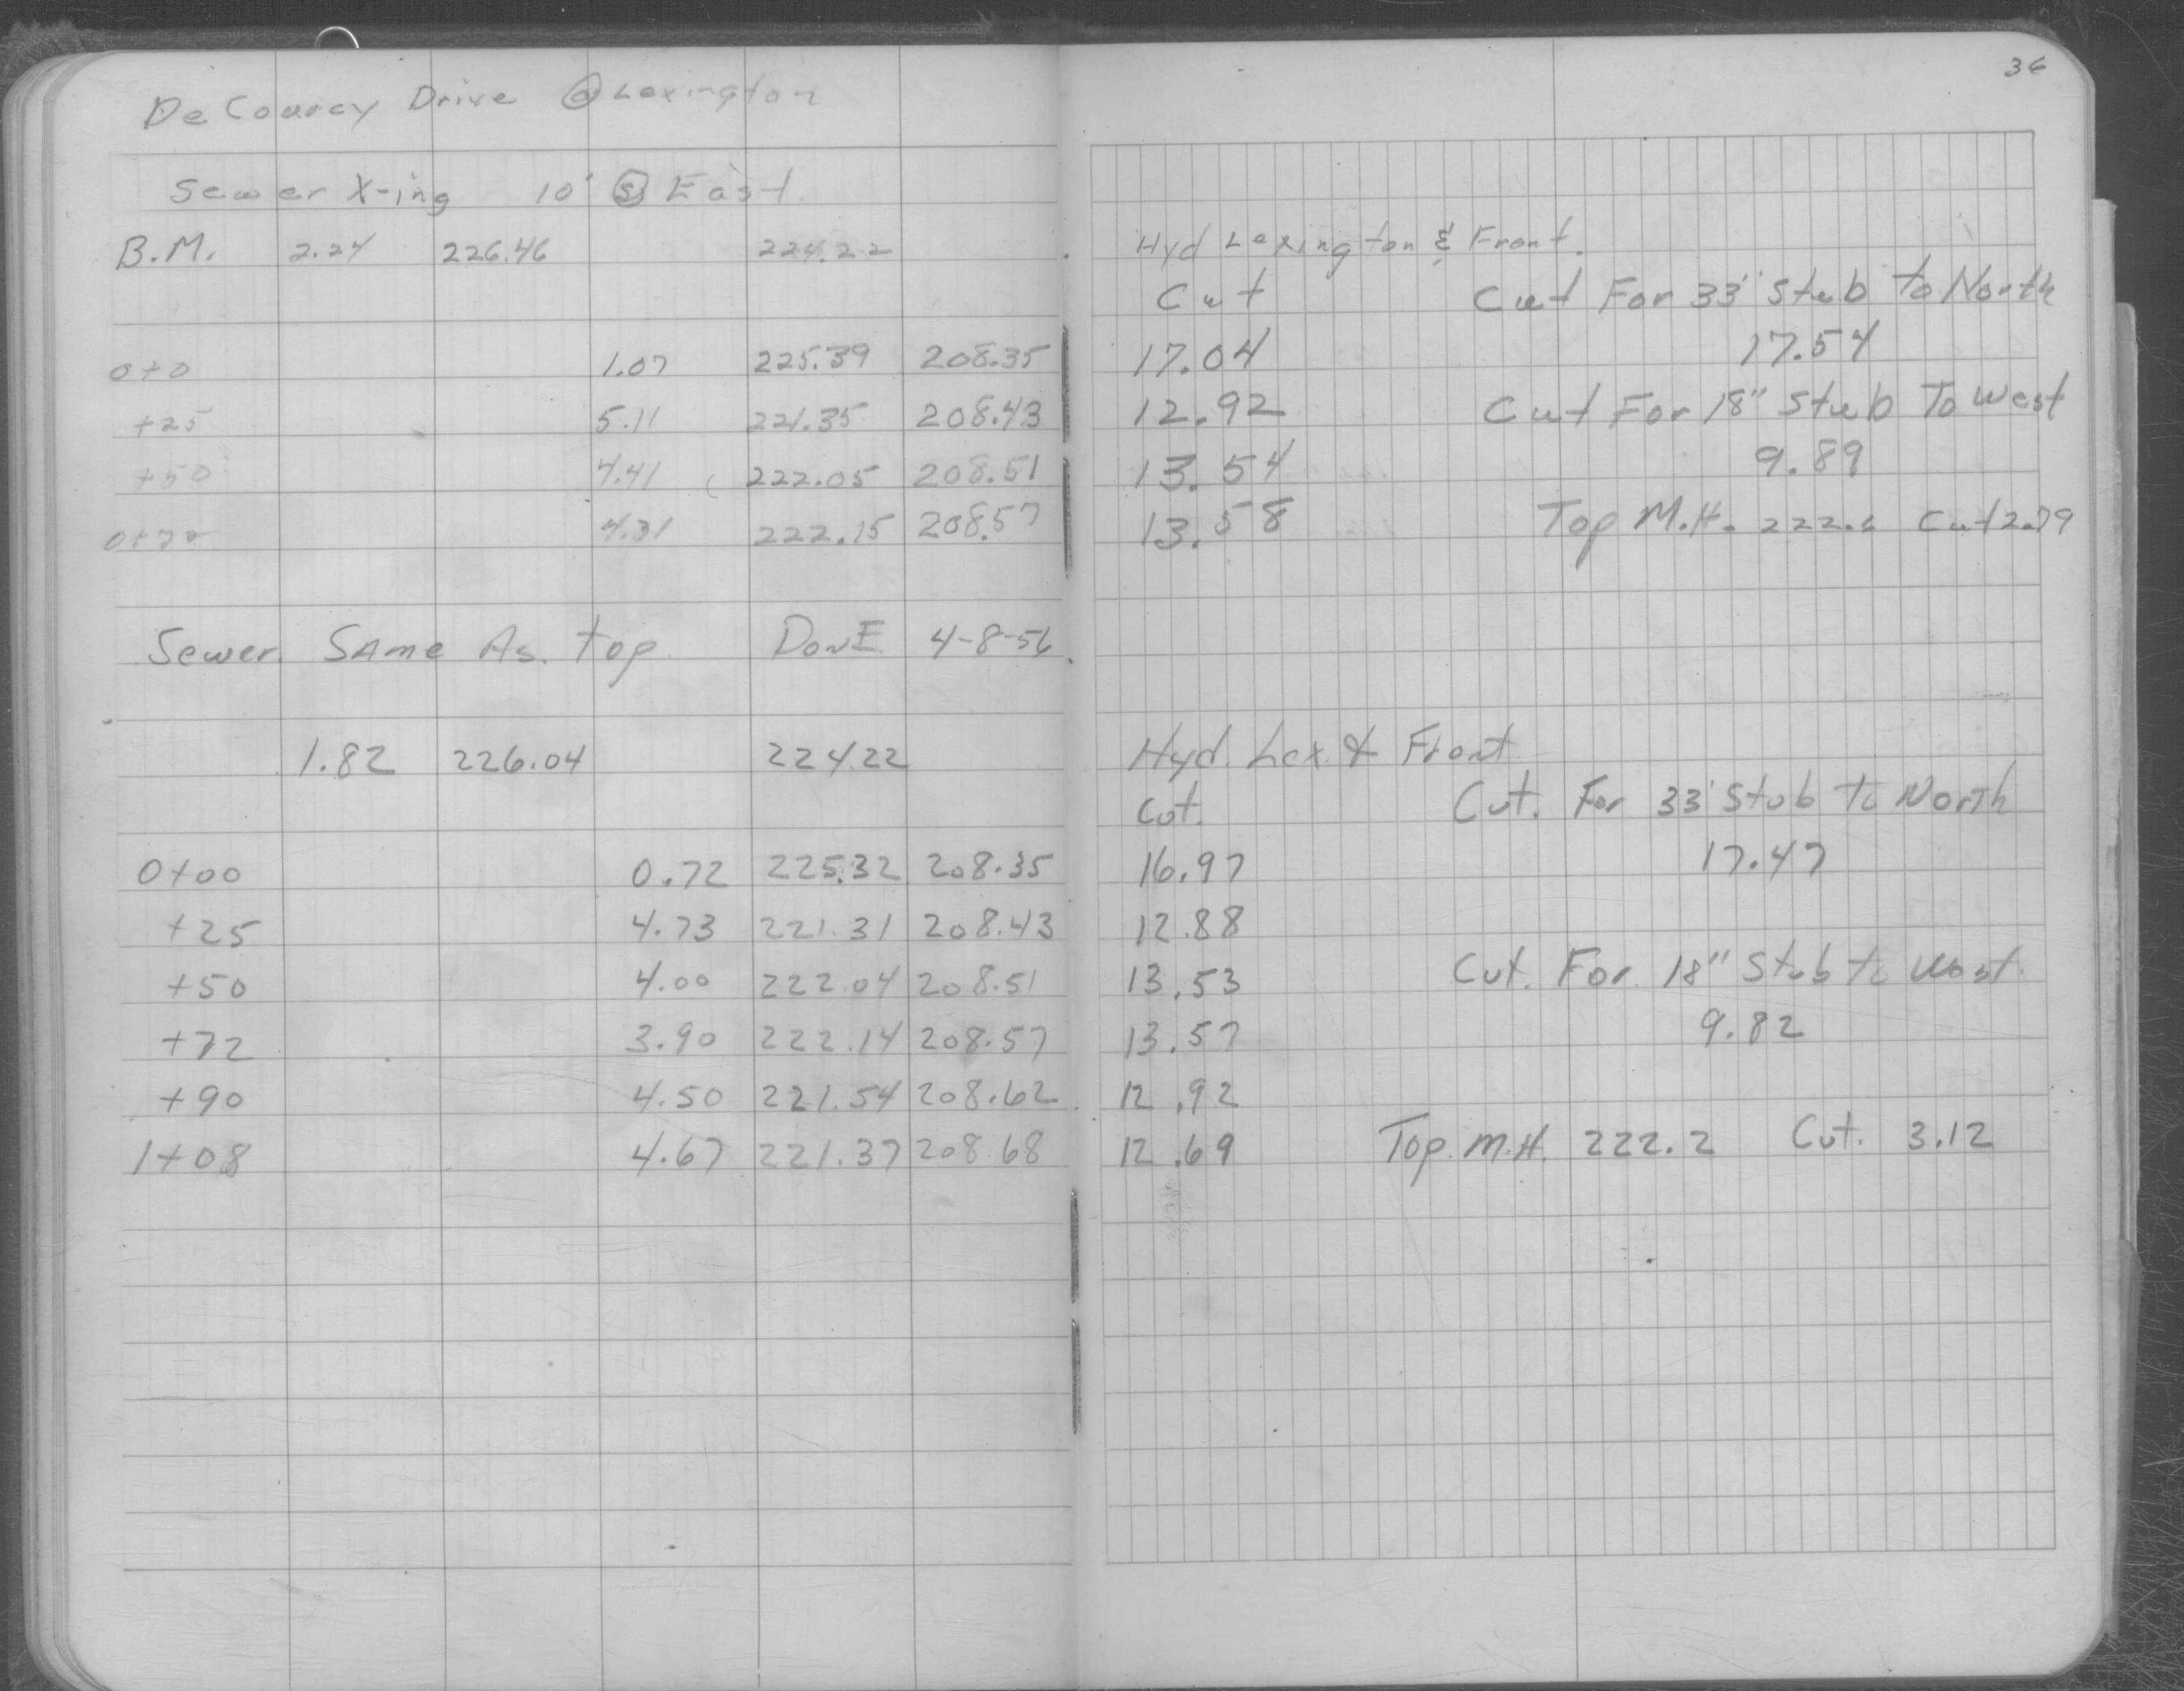 36
De Courcy Drive @ Lexington
Sewer X-ing 10' Ⓢ East
B.M. 2.24 226.46 224.22 Hyd Lexington & Front.
Cut Cut For 33' Stub to North
0+0 1.07 225.39 208.35 17.04 17.54
+25 5.11 221.35 208.43 12.92 Cut For 18" Stub To West
+50 4.41 222.05 208.51 13.54 9.89
0+72 4.31 222.15 208.57 13.58 Top M.H. 222.6 Cut 2.79
Sewer Same As. top DonE 4-8-56
1.82 226.04 224.22 Hyd. Lex. & Front
Cut. Cut. For 33' Stub to North
0+00 0.72 225.32 208.35 16.97 17.47
+25 4.73 221.31 208.43 12.88
+50 4.00 222.04 208.51 13.53 Cut. For. 18" Stub to West.
+72 3.90 222.14 208.57 13.57 9.82
+90 4.50 221.54 208.62 12.92
1+08 4.67 221.37 208.68 12.69 Top. M.H. 222.2 Cut. 3.12